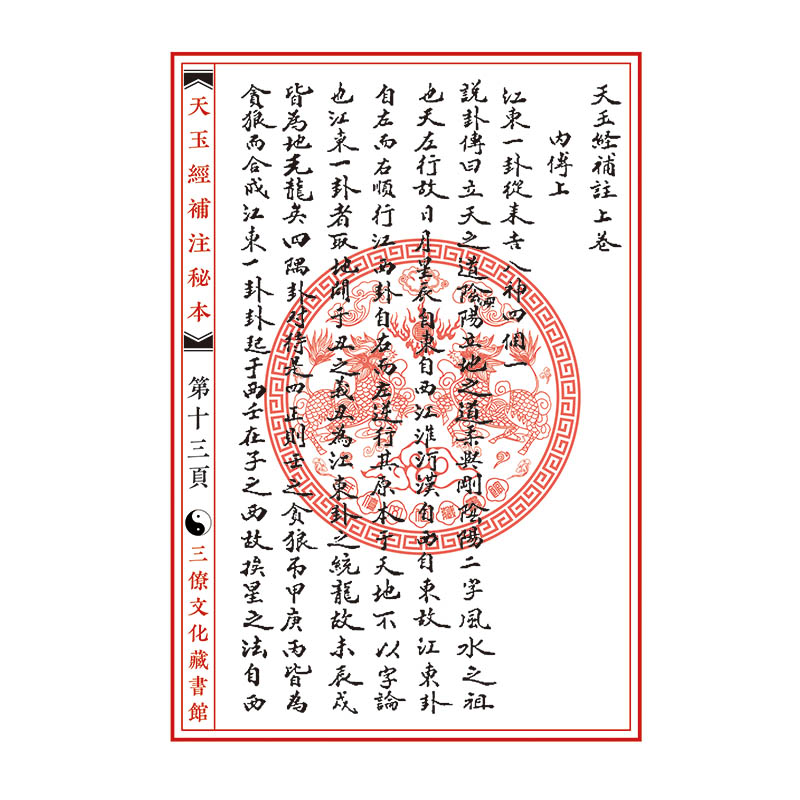 天玉経補註上巻
内傳上
江東一卦從来吉八神四個一
説卦傳曰立天之道陰與陽立地之道柔與剛陰陽二字風水之祖
也天左行故日月星辰自東自西江淮河漢自西自東故江東卦
自左而右順行江西卦自右而左逆行其原本乎天地不以字論
也江東一卦者取地闢于丑之義丑為江東卦之統龍故未辰戌
皆為地元龍矣四隅卦對待是四正則壬之貪狼而甲庚丙皆為
貪狼而合成江東一卦卦起于西壬在子之西故挨星之法自西
天玉經補注秘本
第十三頁
三僚文化藏書館